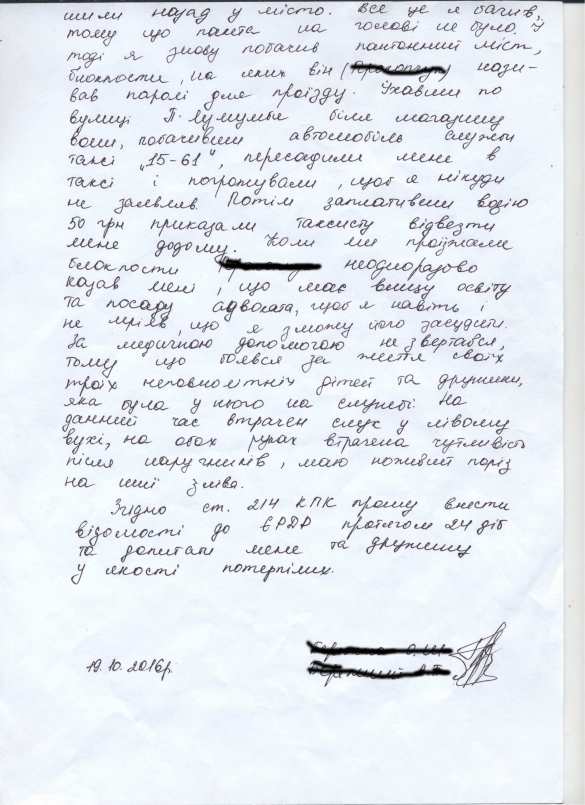 шили назад у місто. Все це я бачив,
тому що пакета на голові не було. І
тоді я знову побачив понтонний міст,
блокпости, на яких він () нази-
вав паролі для проїзду. Їхавши по
вулиці П. Лумумби біля магазину
вони, побачивши автомобіль служби
таксі „15-61", пересадили мене в
таксі і погрожували, щоб я нікуди
не заявляв. Потім заплативши водію
50 грн приказали таксисту відвезти
мене додому. Коли ми проїжали
блокпости неодноразово
казав мені, що має вищу освіту
та посаду адвоката, щоб я навіть і
не мріяв, що я зможу його засудити.
За медичною допомогою не звертався,
тому що боявся за життя своїх
троїх неповнолітніх дітей та дружини,
яка була у нього на службі. На
данний час втрачен слух у лівому
вусі, на обох руках втрачена чутливість
після наручників, маю ножовий поріз
на шиї зліва.
Згідно ст. 214 КПК прошу внести
відомості до ЄРДР протягом 24 діб
та допитати мене та дружину
у якості потерпілих.
19.10.2016р.